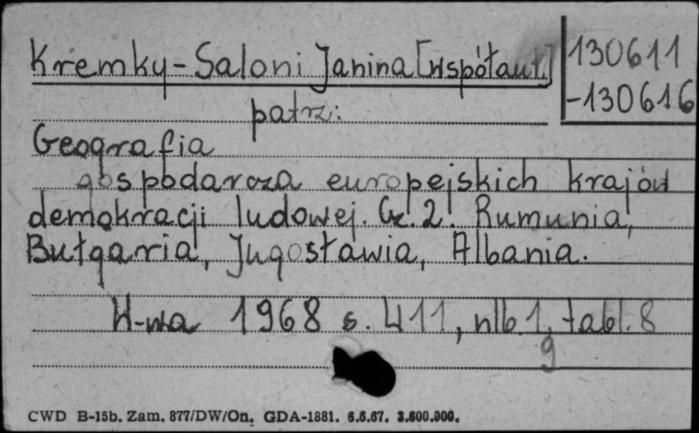 Kremky-Saloni Janina [współaut.]
130611
-130616
patrz:
Geografia
gospodarcza europejskich krajów
demokracji ludowej. Cz. 2. Rumunia,
Bułgaria, Jugosławia, Albania.
W-wa 1968 s. 411, nlb 1, tabl. 8
9
CWD B-15b. Zam. 877/DW/On. GDA-1881. 6.6.67. 3.600.000.